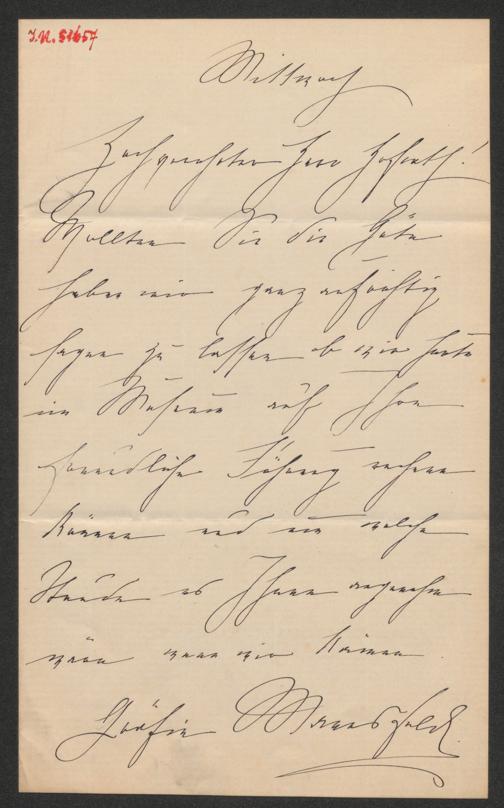 J.N. 51657
Mittwoch
Hochverehrter Herr Hofrath!
Wollten Sie die Güte
haben mir ganz aufrichtig
sagen zu lassen ob wir heute
im Museum auf Ihre
freundliche Führung rechnen
können und um welche
Stunde es Ihnen angenehm
wäre wenn wir kämen
Gräfin Mansfeld.